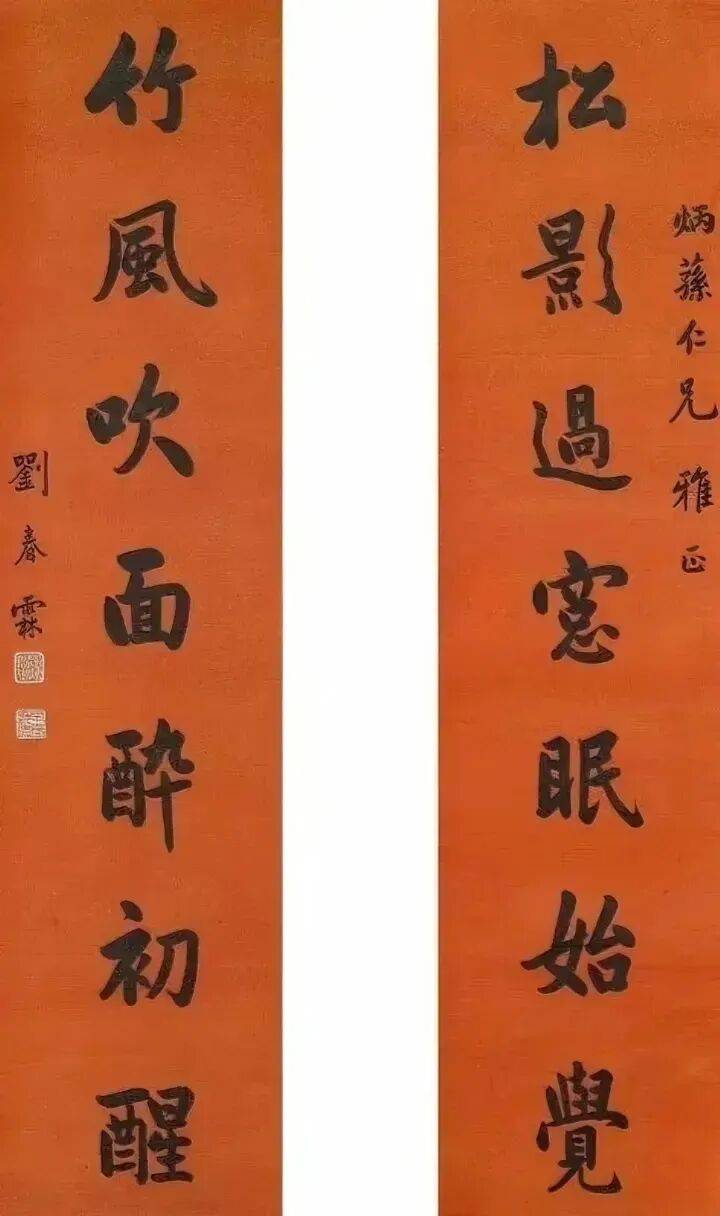 松影過窻眠始覺
炳蓀仁兄 雅正
竹風吹面醉初醒
劉春霖